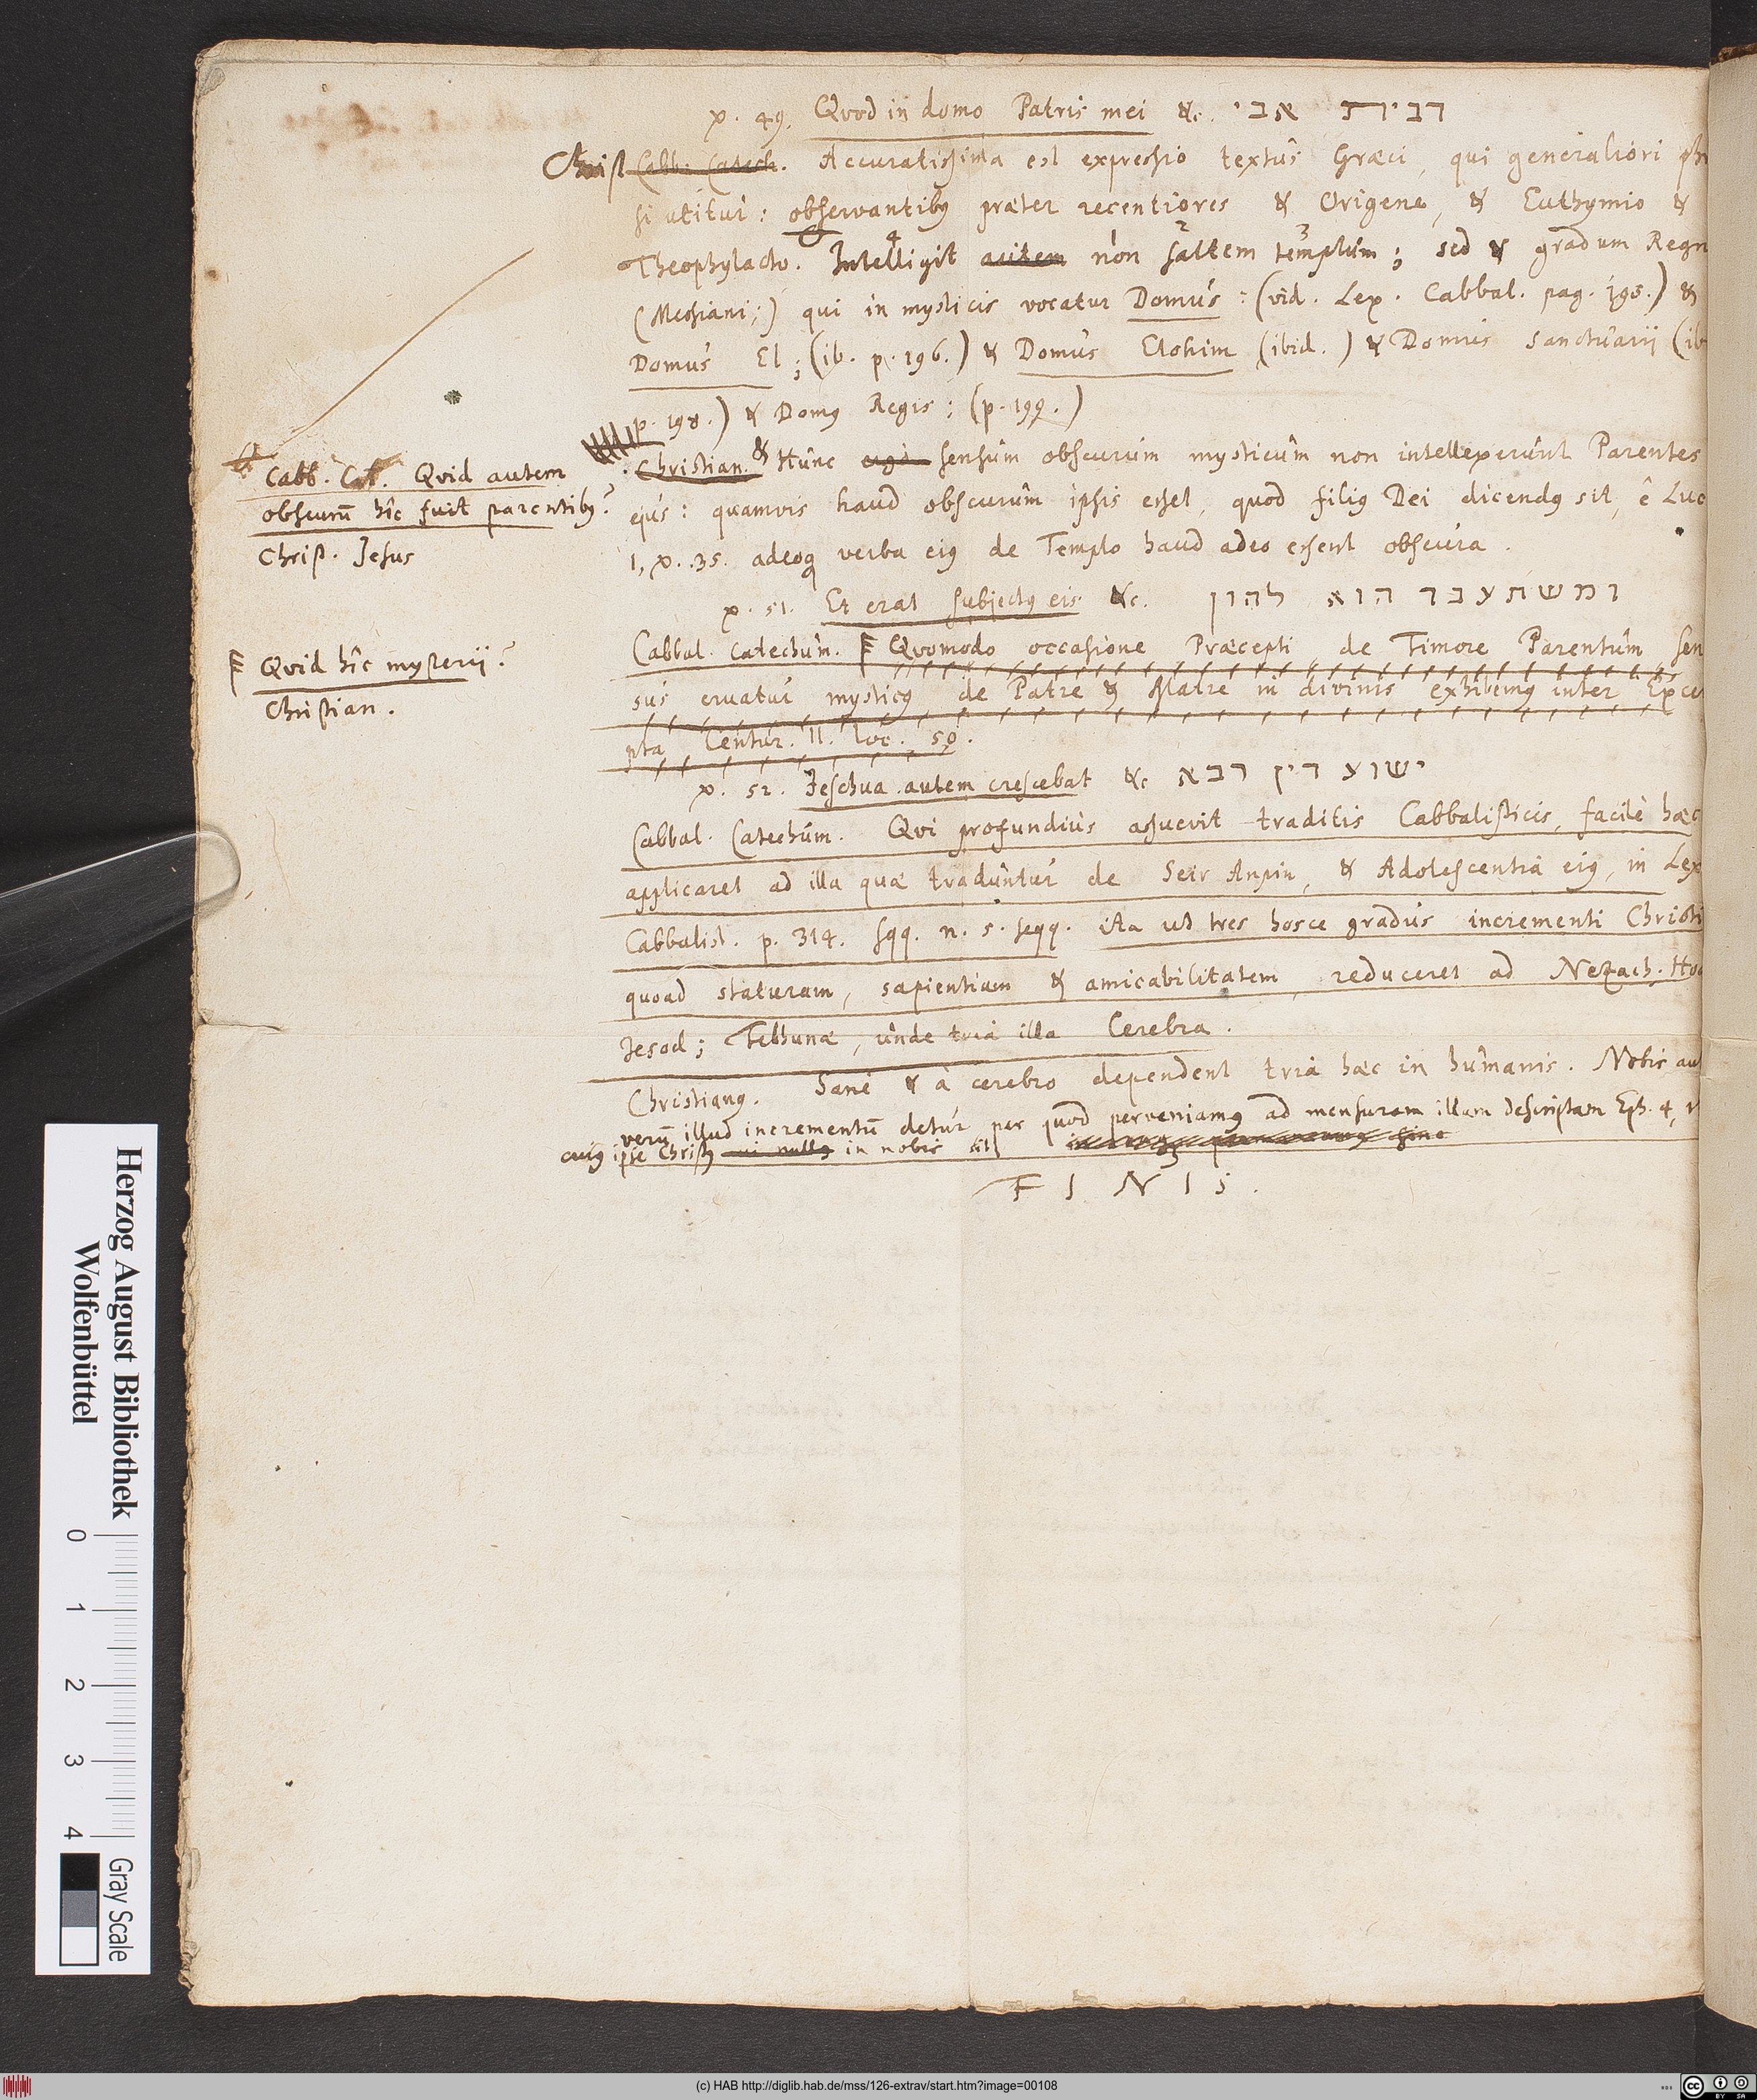 v. 49. Qvod in domo Patris mei &c. דבית אבי
Christ Cabb. Catech. Accuratissima est expressio textus Græci, qui generaliori phr
si utitur: observantibus præter recentiores & Origene, & Euthymio &
Theophylacto. Intelligit autem non saltem templum; sed & gradum Regn
(Messiani;) qui in mysticis vocatur Domus: (vid. Lex. Cabbal. pag. 195.) &
Domus El; (ib. p. 196.) & Domus Elohim (ibid.) & Domus Sanctuarii (ib
p. 198.) & Domus Regis; (p. 199.)
Cabb. Cat. Qvid autem
obscurum hîc fuit parentibus?
Christ. Jesus
Christian. & Hunc ergò sensum obscurum mysticum non intellexerunt Parentes
ejus: quamvis haud obscurum ipsis esset, quod filius Dei dicendus sit, è Luc
1, v. 35. adeoque verba eius de Templo haud adeo essent obscura.
v. 51. Et erat subjectus eis &c. ומשתעבד הוא להון
F Qvid hîc mysterii?
Christian.
Cabbal. Catechum. F Qvomodo occasione Præcepti de Timore Parentum sen
sus eruatur mysticus de Patre & Matre in divinis exhibemus inter Exce
pta Centur. II. loc. 50.
v. 52. Jeschua autem crescebat &c ישוע דין רבא
Cabbal. Catechum. Qvi profundius assuevit traditis Cabbalisticis, facilè hæc
applicaret ad illa quæ traduntur de Seir Anpin, & Adolescentia eius, in Lex
Cabbalist. p. 314. sqq. n. 5. seqq. ita ut tres hosce gradus incrementi Christi
quoad staturam, sapientiam & amicabilitatem, reduceret ad Nezach. Hod
Jesod; Tebhunæ, unde tria illa Cerebra.
Christianus. Sanè & à cerebro dependent tria hæc in humanis. Nobis aut
verum illud incrementum detur per quod perveniamus ad mensuram illam descriptam Eph. 4, v
cuius ipse Christus in nobis sit
FINIS.
Herzog August Bibliothek
Wolfenbüttel
0 1 2 3 4
Gray Scale
(c) HAB http://diglib.hab.de/mss/126-extrav/start.htm?image=00108
cc BY SA